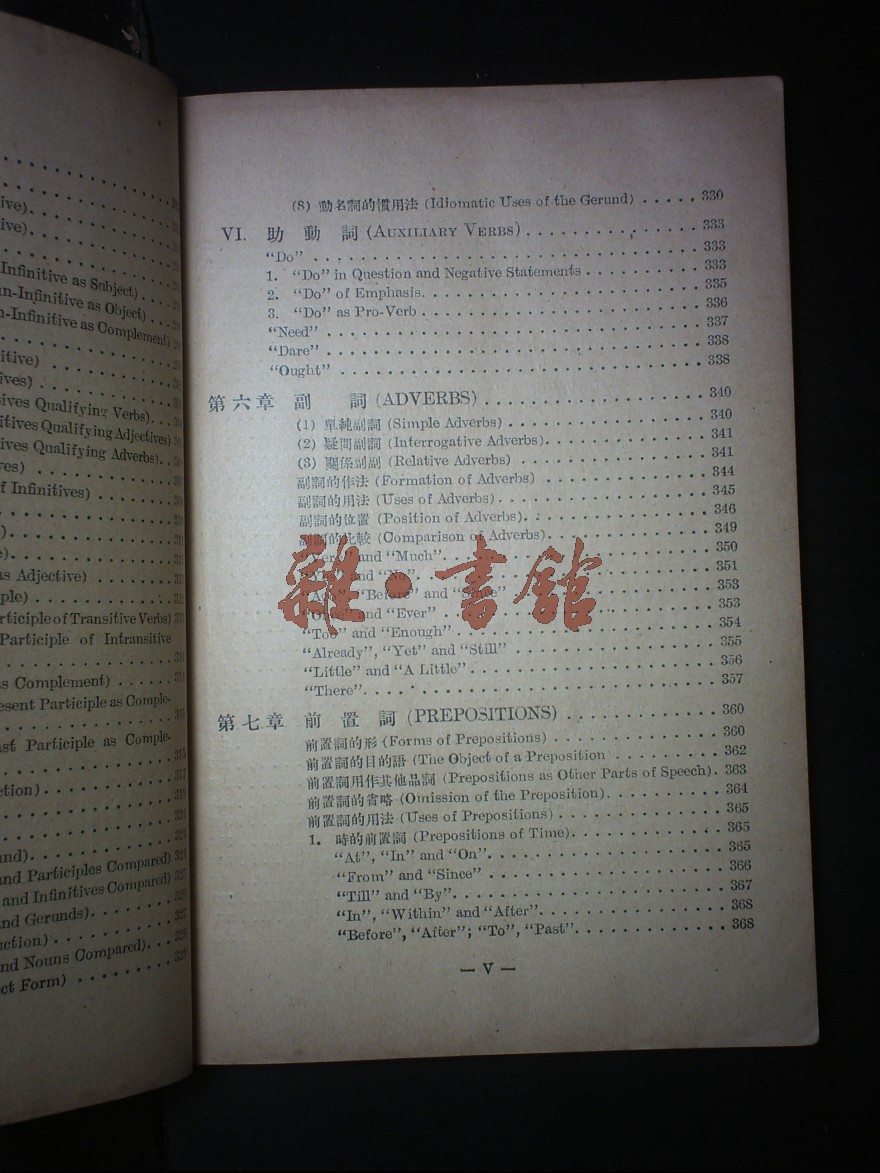 ive)
ive)
Infinitive as Subject)
n-Infinitive as Object)
n-Infinitive as Complement)
itive)
ives)
ives Qualifying Verbs)
itives Qualifying Adjectives)
ives Qualifying Adverbs)
ves)
of Infinitives)
as Adjective)
ple)
articiple of Transitive Verbs)
Participle of Intransitive
as Complement)
esent Participle as Comple-
ast Participle as Comple-
ction) 317
und)
and Participles Compared)
and Infinitives Compared)
nd Gerunds)
uction)
nd Nouns Compared)
ct Form)
(8) 動名詞的慣用法 (Idiomatic Uses of the Gerund) ..... 330
VI. 助動詞 (AUXILIARY VERBS) ..... 333
“Do” ..... 333
1. “Do” in Question and Negative Statements ..... 333
2. “Do” of Emphasis ..... 335
3. “Do” as Pro-Verb ..... 336
“Need” ..... 337
“Dare” ..... 338
“Ought” ..... 338
第六章 副詞 (ADVERBS) ..... 340
(1) 單純副詞 (Simple Adverbs) ..... 340
(2) 疑問副詞 (Interrogative Adverbs) ..... 341
(3) 關係副副 (Relative Adverbs) ..... 341
副詞的作法 (Formation of Adverbs) ..... 344
副詞的用法 (Uses of Adverbs) ..... 345
副詞的位置 (Position of Adverbs) ..... 346
副詞的比較 (Comparison of Adverbs) ..... 349
“Very” and “Much” ..... 350
“Yes” and “No” ..... 351
“Ago”, “Before” and “Since” ..... 353
“Once” and “Ever” ..... 353
“Too” and “Enough” ..... 354
“Already”, “Yet” and “Still” ..... 355
“Little” and “A Little” ..... 356
“There” ..... 357
雜·書館
第七章 前置詞 (PREPOSITIONS) ..... 360
前置詞的形 (Forms of Prepositions) ..... 360
前置詞的目的語 (The Object of a Preposition ..... 362
前置詞用作其他品詞 (Prepositions as Other Parts of Speech). 363
前置詞的省略 (Omission of the Preposition) ..... 364
前置詞的用法 (Uses of Prepositions) ..... 365
1. 時的前置詞 (Prepositions of Time) ..... 365
“At”, “In” and “On” ..... 365
“From” and “Since” ..... 366
“Till” and “By” ..... 367
“In”, “Within” and “After” ..... 368
“Before”, “After”; “To”, “Past” ..... 368
— V —